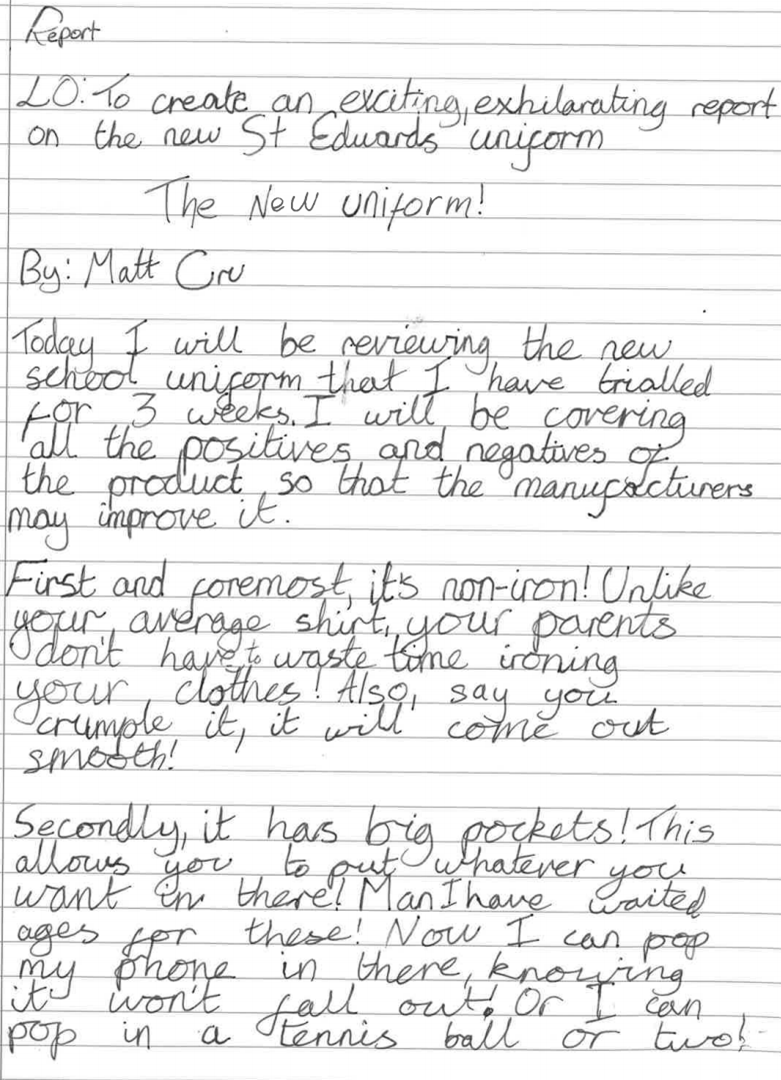 Report
LO: To create an exciting, exhilarating report
on the new St Edwards uniform
The New uniform!
By: Matt Cru
Today I will be reviewing the new
school uniform that I have trialled
for 3 weeks. I will be covering
all the positives and negatives of
the product, so that the manufacturers
may improve it.
First and foremost, it's non-iron! Unlike
your average shirt, your parents
don't have to waste time ironing
your clothes! Also, say you
crumple it, it will come out
smooth!
Secondly, it has big pockets! This
allows you to put whatever you
want in there! Man I have waited
ages for these! Now I can pop
my phone in there, knowing
it won't fall out! Or I can
pop in a tennis ball or two!